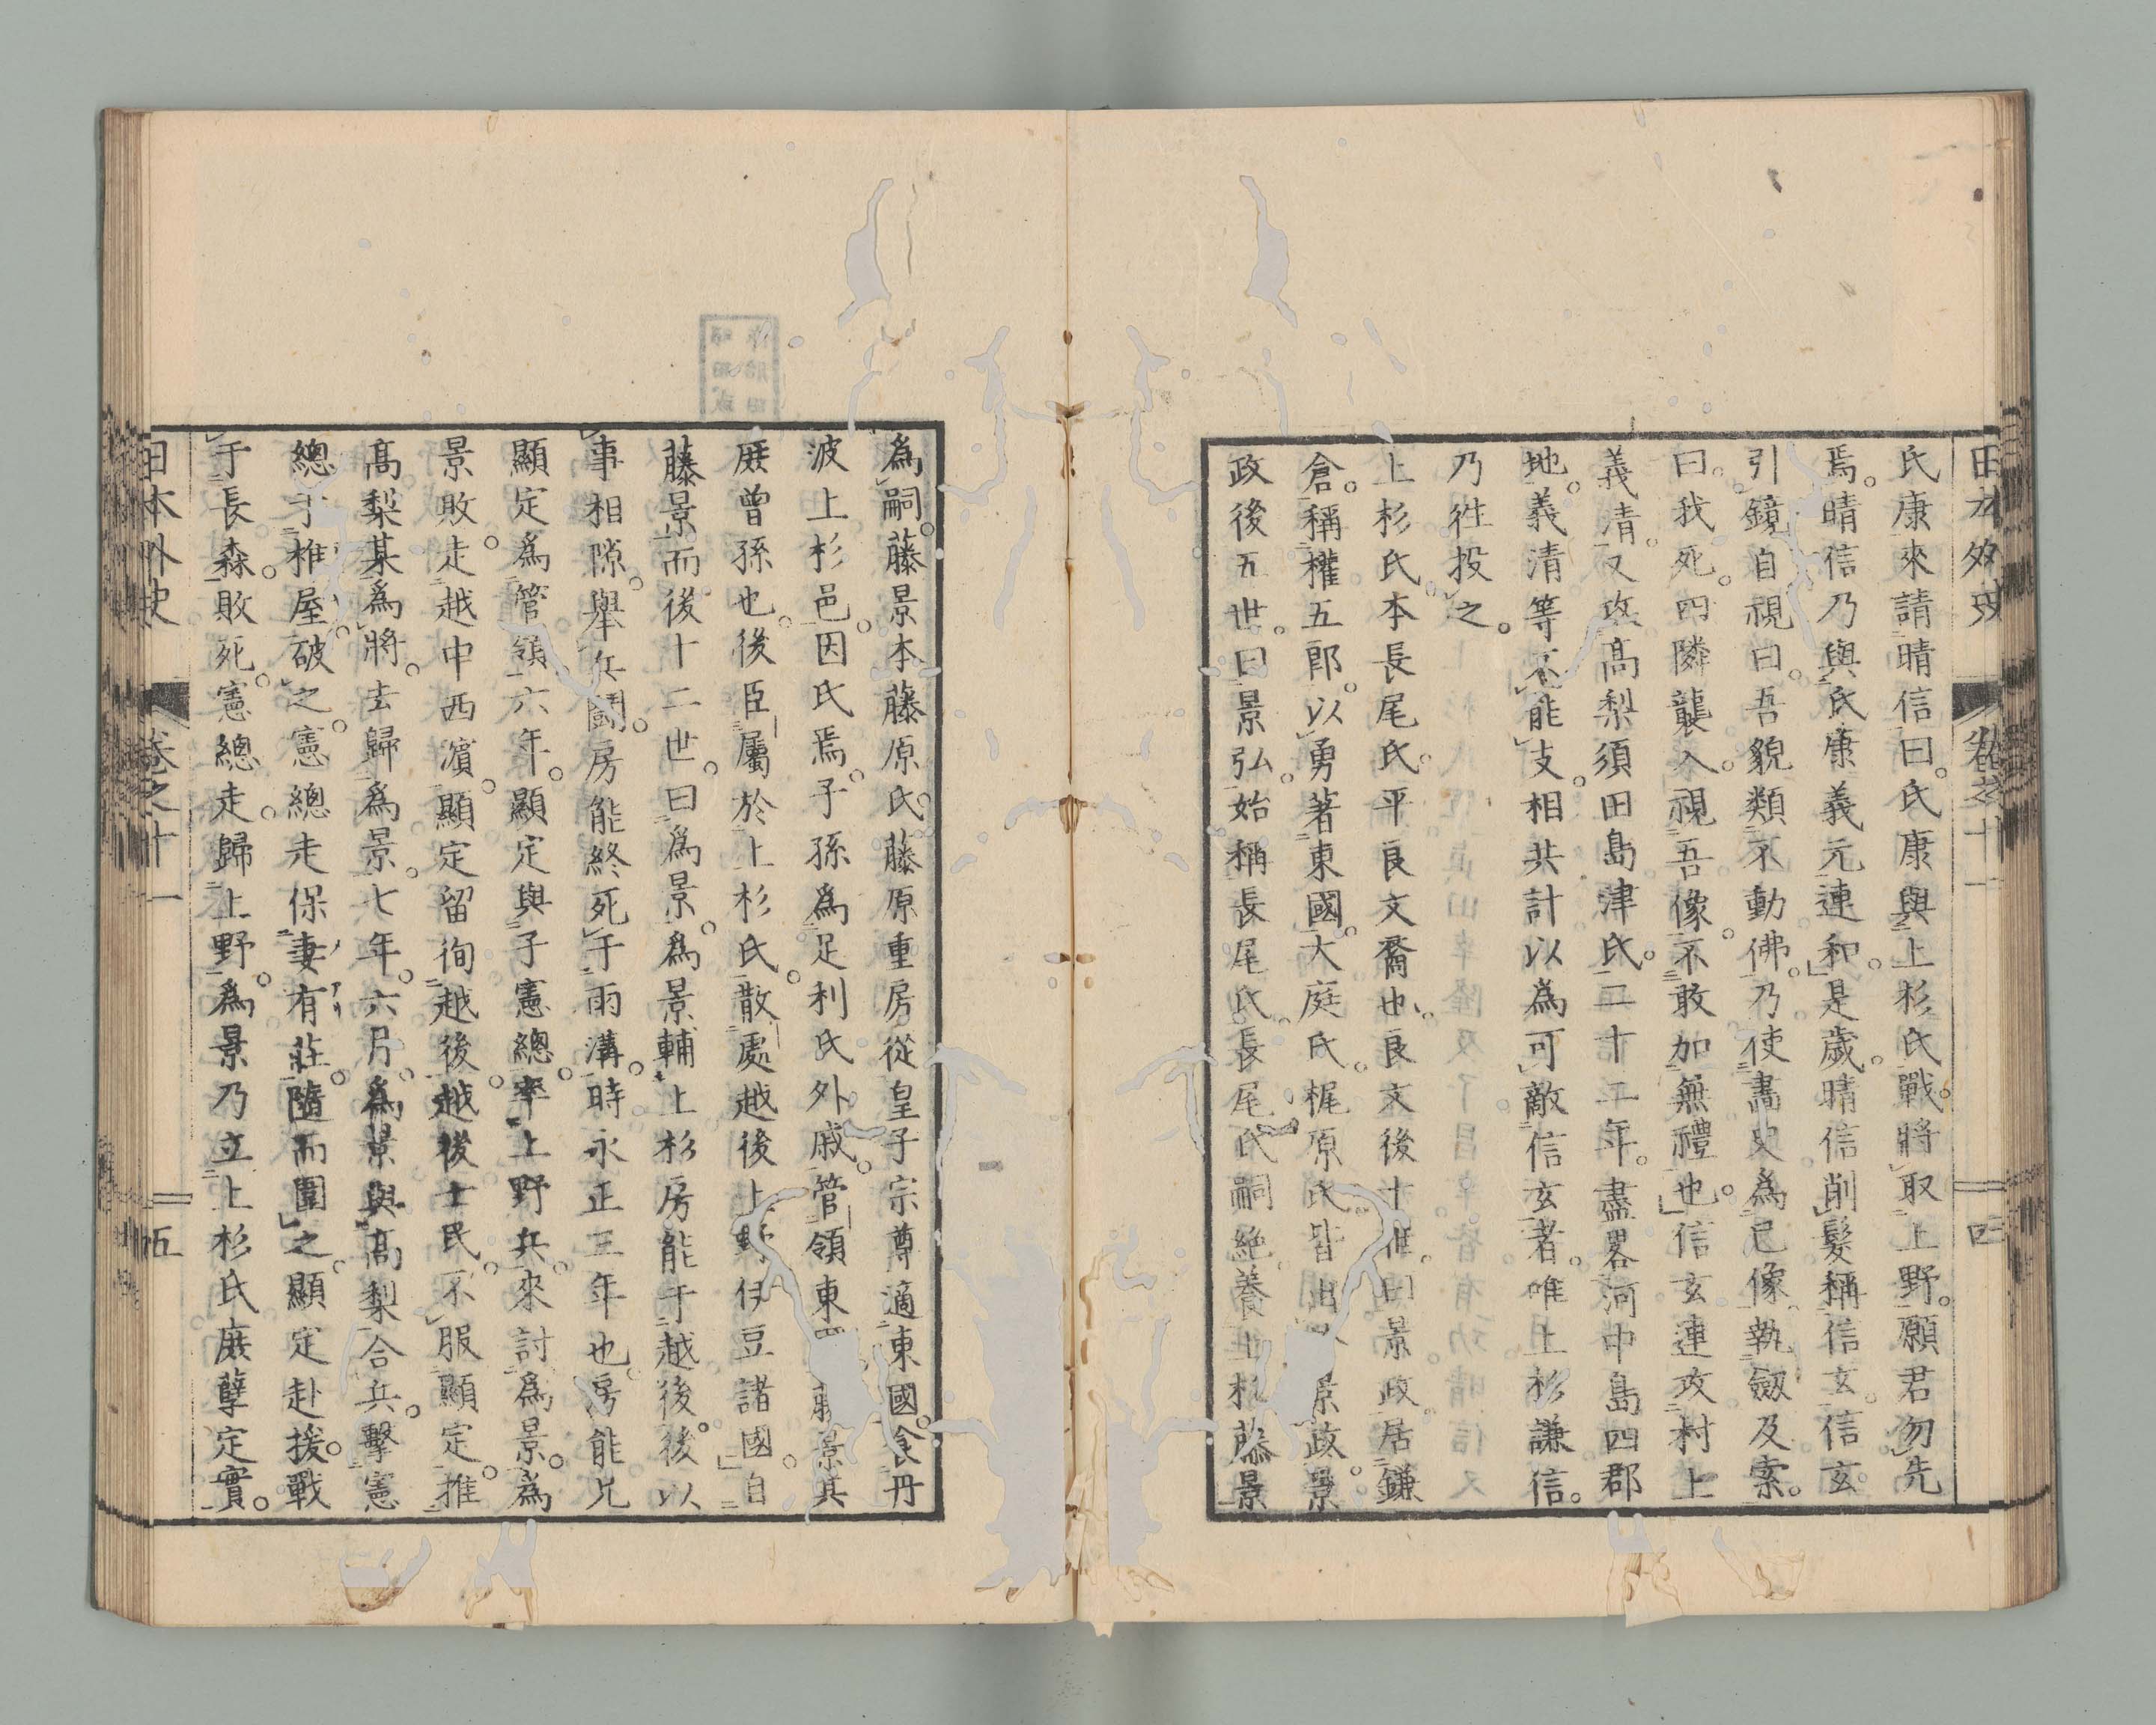 日本外史 卷之十一 四
氏康來請晴信曰。氏康與上杉氏戰。將取上野。願君勿先
焉。晴信乃與氏康義元連和。是歲。晴信削髮稱信玄。信玄
引鏡自視曰。吾貌類不動佛。乃使畵史爲已像。執劔及索。
曰。我死。四隣襲入。視吾像。不敢加無禮也。信玄連攻村上
義清。又攻高梨須田島津氏。二十二年。盡畧河中島四郡
地。義清等不能支。相共計以爲可敵信玄者。唯上杉謙信。
乃徃投之。
上杉氏。本長尾氏。平良文裔也。良文後十世。曰景政。居鎌
倉。稱權五郎。以勇著東國。大庭氏。梶原氏皆出景政。景
政後五世。曰景弘。始稱長尾氏。長尾氏嗣絶。養上杉藤景
爲嗣。藤景本藤原氏。藤原重房從皇子宗尊適東國。食丹
波上杉邑。因氏焉。子孫爲足利氏外戚。管領東藤景其
庶曾孫也。後臣屬於上杉氏。散處越後上野伊豆諸國。自
藤景而後十二世。曰爲景。爲景輔上杉房能于越後。後以
事相隙。舉兵鬪。房能終死于雨溝。時永正三年也。房能兄
顯定爲管領。六年。顯定與子憲總。率上野兵。來討爲景。爲
景敗走越中西濱。顯定留徇越後。越後士民。不服顯定。推
高梨某爲將。去歸爲景。七年。六月。爲景與高梨合兵。擊憲
總于椎屋破之。憲總走保妻有莊。隨而圍之。顯定赴援。戰
于長森。敗死。憲總走歸上野。爲景乃立上杉氏庶孽定實。
日本外史 卷之十一 五